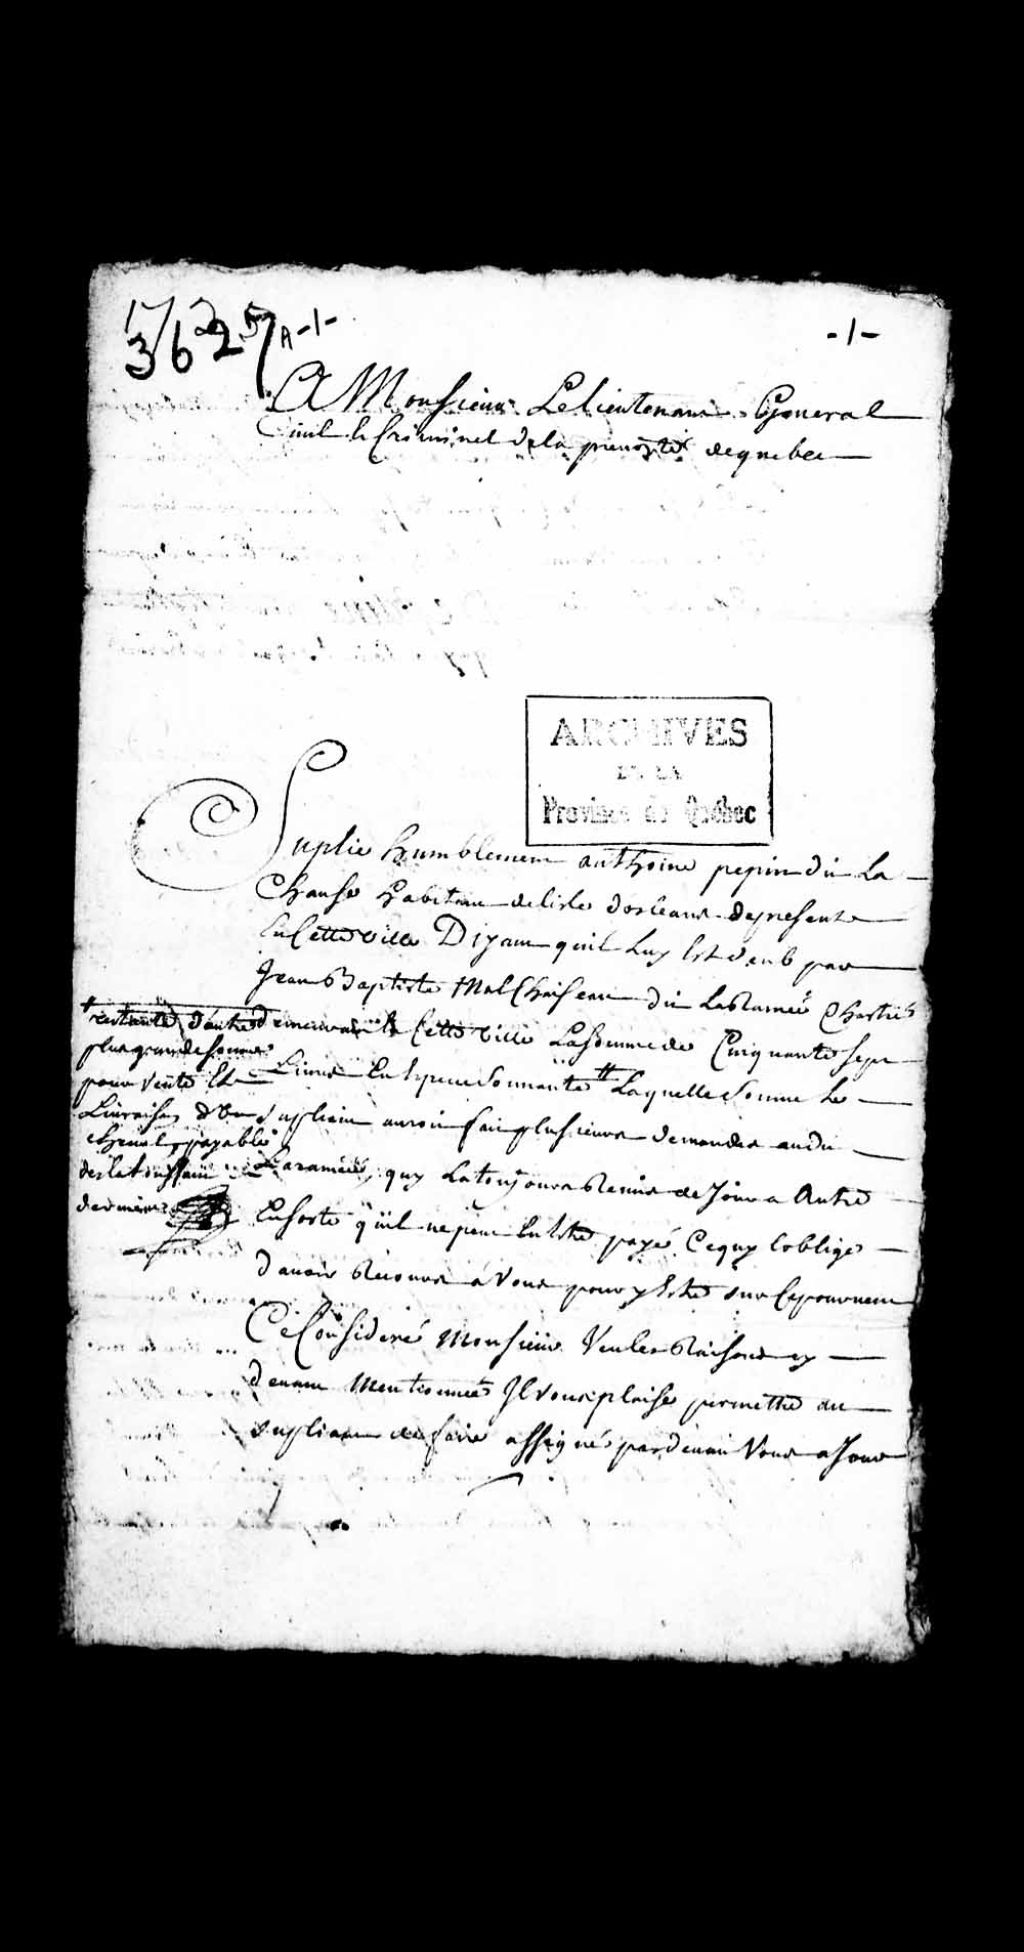 3627 A -1-
-1-
A Monsieur Le lieutenant General
Civil & Criminel de la prevosté de quebec
ARCHIVES
DE LA
Province de Québec
Suplie humblement anthoine pepin dit La
Chanse habitant de lisle dorleans de present
En Cette ville Disant quil Luy Est deub par
Jean Baptiste MalChaiseau dit LaRamée Chartié
Demeurant Cette ville La Somme de Cinquante sept
Livres En Espece Sonnante # Laquelle Somme Le
Supliant auroit fait plusieurs demandes audit
Laramée, quy La toujours Remis de Jour a Autre
En sorte quil ne peut En Estre payé Ce quy Loblige
davoir Recours a Vous pour y Estre sur Ce pourveu
Ce Consideré Monsieur Veu les Raisons cy
devant Mentionnées Il vous plaise permettre au
supliant de faire assigner pardevant Vous a Jour
restante d'autre
plus grande Somme
pour vente Et
Livraison d'Un
cheval, payable
des la toussaint
derniere